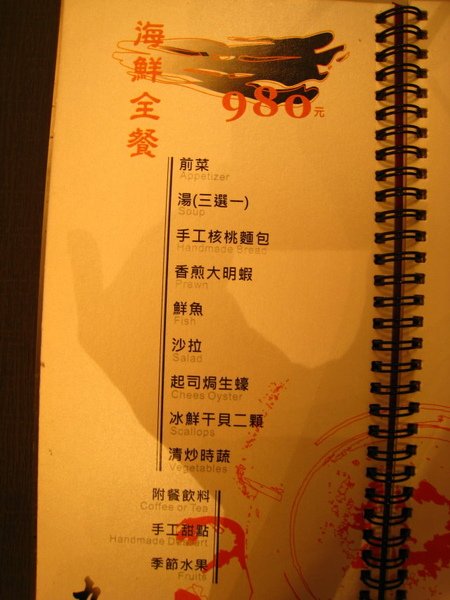 海鮮全餐
980元
前菜
Appetizer
湯(三選一)
Soup
手工核桃麵包
Handmade Bread
香煎大明蝦
Prawn
鮮魚
Fish
沙拉
Salad
起司焗生蠔
Chees Oyster
冰鮮干貝二顆
Scallops
清炒時蔬
Vegetables
附餐飲料
Coffee or Tea
手工甜點
Handmade Dessart
季節水果
Fruits